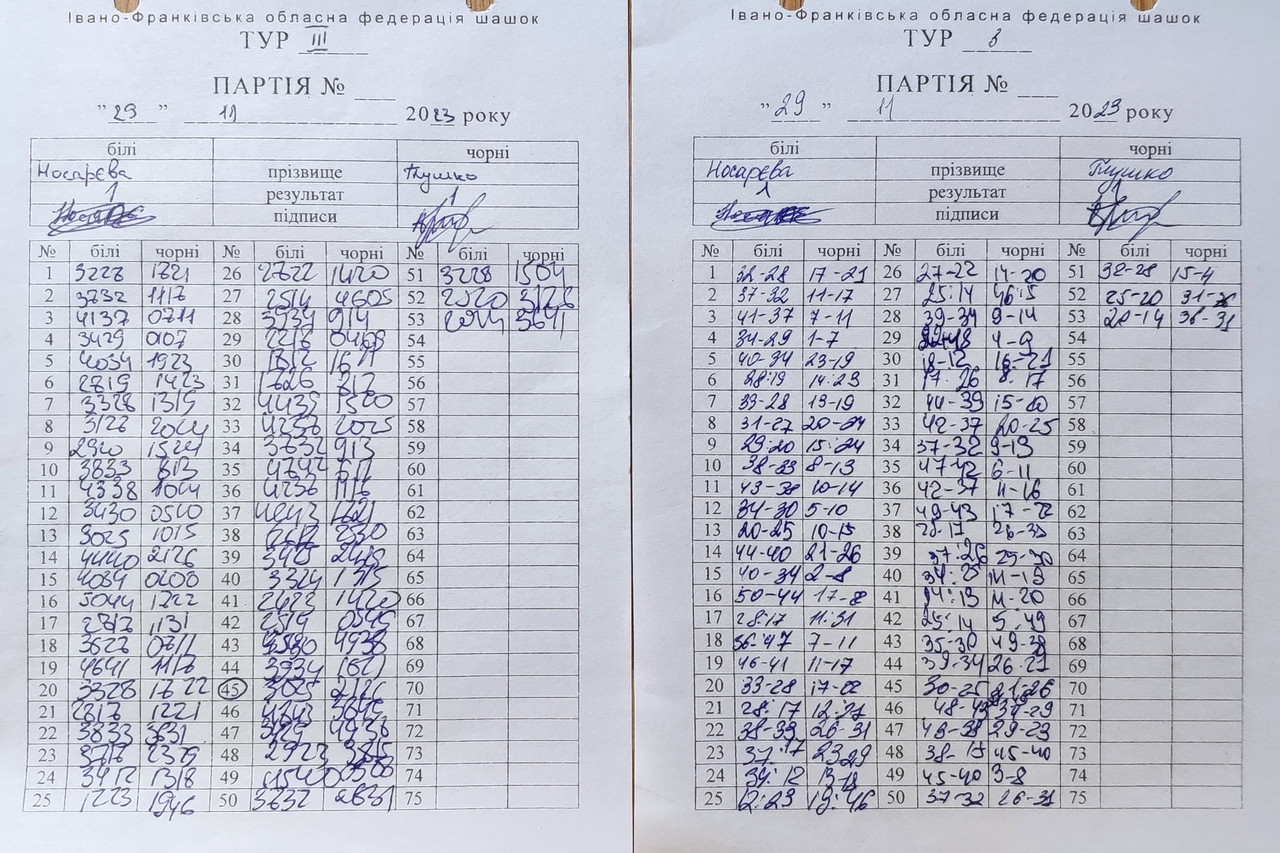 Івано-Франківська обласна федерація шашок
ТУР III
ПАРТІЯ № ___
" 29 " 11 2023 року
білі чорні
Носарєва прізвище Глушко
1 результат 1
підписи
№ білі чорні № білі чорні № білі чорні
1 3228 1721 26 2722 1420 51 3228 1504
2 3732 1117 27 2514 4605 52 2520 3126
3 4137 0711 28 3934 914 53 2014 3641
4 3429 0107 29 54
5 4034 1923 30 1812 55
6 2819 1423 31 1726 56
7 3328 1319 32 4439 1520 57
8 3126 2024 33 4237 2025 58
9 2920 1524 34 3732 913 59
10 3833 813 35 4742 611 60
11 4338 1014 36 4237 1116 61
12 3430 0510 37 62
13 3025 1015 38 63
14 4440 2126 39 64
15 4034 0208 40 65
16 5044 1722 41 1420 66
17 2817 1131 42 2514 0549 67
18 3627 0711 43 3530 4938 68
19 4641 1117 44 3934 1621 69
20 3328 1722 45 3025 2126 70
21 2817 1221 46 4843 71
22 3833 2631 47 72
23 3717 2329 48 73
24 3412 1318 49 4540 74
25 1223 1946 50 3732 2631 75
Івано-Франківська обласна федерація шашок
ТУР 3
ПАРТІЯ № ___
" 29 " 11 2023 року
білі чорні
Носарєва прізвище Глушко
1 результат 1
підписи
№ білі чорні № білі чорні № білі чорні
1 32-28 17-21 26 27-22 14-20 51 32-28 15-4
2 37-32 11-17 27 25:14 46:5 52 25-20 31-26
3 41-37 7-11 28 39-34 9-14 53 20-14 36-31
4 34-29 1-7 29 4-9 54
5 40-34 23-19 30 18-12 16-21 55
6 28:19 14:23 31 17:26 8:17 56
7 33-28 13-19 32 44-39 15-20 57
8 31-27 20-24 33 42-37 20-25 58
9 29:20 15:24 34 37-32 9-13 59
10 38-33 8-13 35 47-42 6-11 60
11 43-38 10-14 36 42-37 11-16 61
12 34-30 5-10 37 49-43 17-22 62
13 20-25 10-15 38 28:17 63
14 44-40 21-26 39 37:26 29-30 64
15 40-34 2-8 40 34:25 14-19 65
16 50-44 17-22 41 24:13 14-20 66
17 28:17 11:31 42 25:14 5:49 67
18 36:47 7-11 43 35-30 49-38 68
19 46-41 11-17 44 39-34 26-21 69
20 33-28 17-22 45 30-25 21-26 70
21 28:17 12:21 46 48-43 71
22 38-33 26-31 47 29-23 72
23 37:17 23:29 48 45-40 73
24 34:12 13-18 49 45-40 3-8 74
25 12:23 19:46 50 37-32 26-31 75